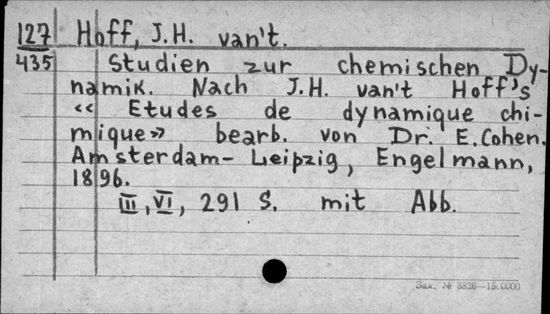 127 Hoff, J.H. van't.
435 Studien zur chemischen Dy-
namik. Nach J.H. van't Hoff's
«Etudes de dynamique chi-
mique» bearb. von Dr. E. Cohen.
Amsterdam-Leipzig, Engelmann,
1896.
III, VI, 291 S. mit Abb.
Зак. № 3826—15.0000